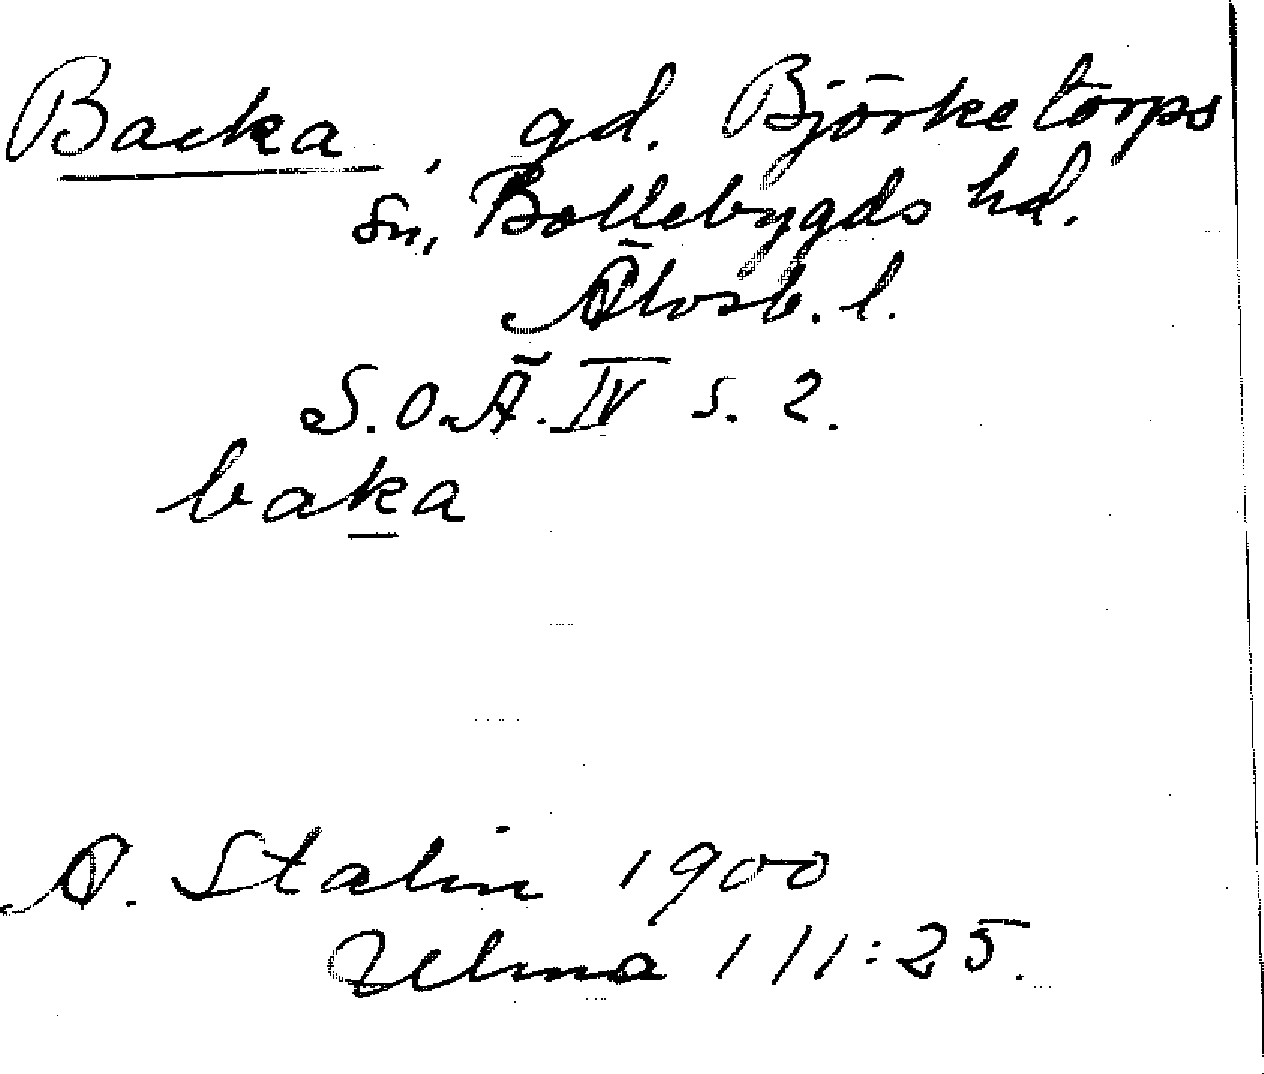 Backa, gd. Björketorps
sn, Bollebygds hd.
Älvsb. l.
S.O.Ä. IV s. 2.
baka
A. Stalin 1900
Ulma 111:25.